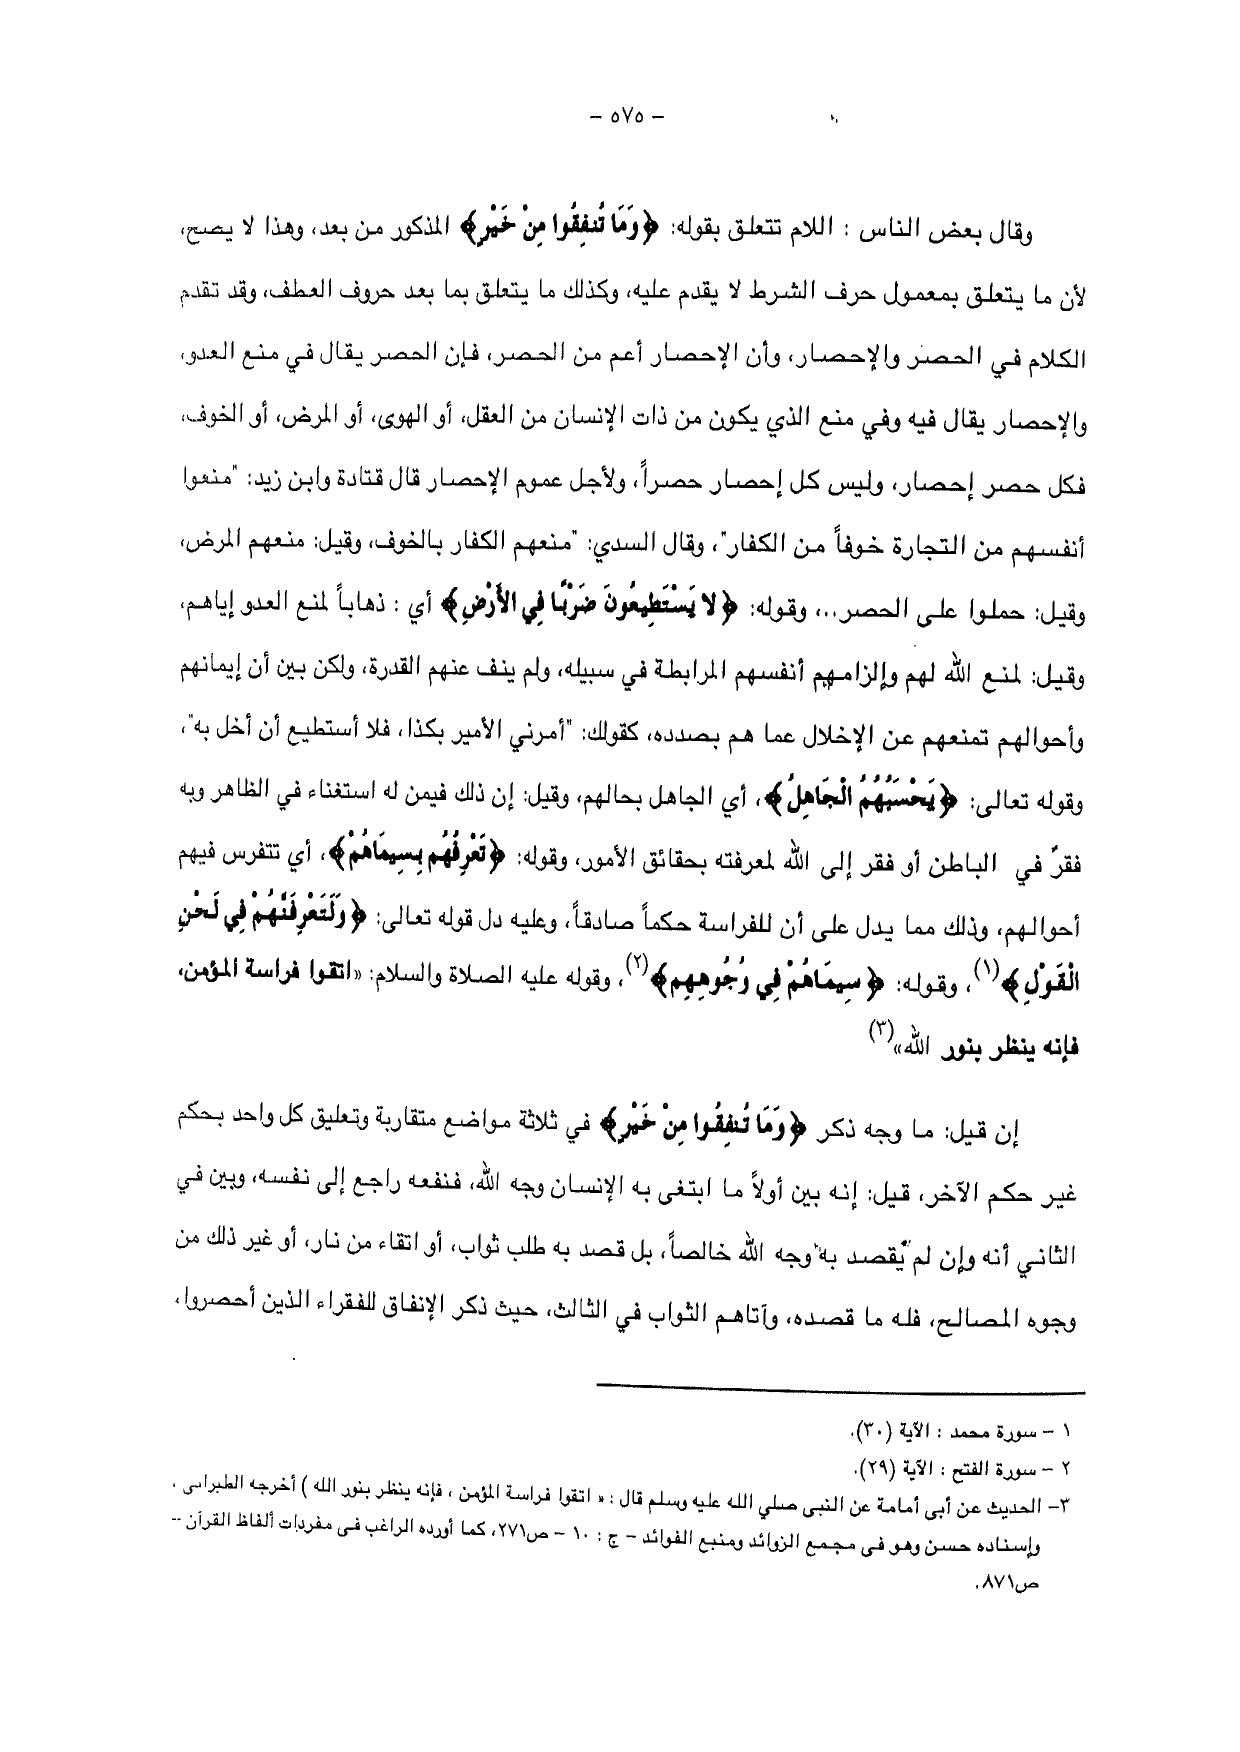 – ٥٧٥ –
وقال بعض الناس : اللام تتعلق بقوله: ﴿وَمَا تُنفِقُوا مِنْ خَيْرٍ﴾ المذكور من بعد، وهذا لا يصح،
لأن ما يتعلق بمعمول حرف الشرط لا يقدم عليه، وكذلك ما يتعلق بما بعد حروف العطف، وقد تقدم
الكلام في الحصر والإحصار، وأن الإحصار أعم من الحصر، فإن الحصر يقال في منع العدو،
والإحصار يقال فيه وفي منع الذي يكون من ذات الإنسان من العقل، أو الهوى، أو المرض، أو الخوف،
فكل حصر إحصار، وليس كل إحصار حصراً، ولأجل عموم الإحصار قال قتادة وابن زيد: "منعوا
أنفسهم من التجارة خوفاً من الكفار"، وقال السدي: "منعهم الكفار بالخوف، وقيل: منعهم المرض،
وقيل: حملوا على الحصر..، وقوله: ﴿لا يَسْتَطِيعُونَ ضَرْبًا فِي الأَرْضِ﴾ أي : ذهاباً لمنع العدو إياهم،
وقيل: لمنع الله لهم وإلزامهم أنفسهم المرابطة في سبيله، ولم ينف عنهم القدرة، ولكن بين أن إيمانهم
وأحوالهم تمنعهم عن الإخلال عما هم بصدده، كقولك: "أمرني الأمير بكذا، فلا أستطيع أن أخل به"،
وقوله تعالى: ﴿يَحْسَبُهُمُ الْجَاهِلُ﴾، أي الجاهل بحالهم، وقيل: إن ذلك فيمن له استغناء في الظاهر وبه
فقرٌ في الباطن أو فقر إلى الله لمعرفته بحقائق الأمور، وقوله: ﴿تَعْرِفُهُم بِسِيمَاهُمْ﴾، أي تتفرس فيهم
أحوالهم، وذلك مما يدل على أن للفراسة حكماً صادقاً، وعليه دل قوله تعالى: ﴿وَلَتَعْرِفَنَّهُمْ فِي لَحْنِ
الْقَوْلِ﴾(١)، وقوله: ﴿سِيمَاهُمْ فِي وُجُوهِهِم﴾(٢)، وقوله عليه الصلاة والسلام: «اتقوا فراسة المؤمن،
فإنه ينظر بنور الله»(٣)
إن قيل: ما وجه ذكر ﴿وَمَا تُنفِقُوا مِنْ خَيْرٍ﴾ في ثلاثة مواضع متقاربة وتعليق كل واحد بحكم
غير حكم الآخر، قيل: إنه بين أولاً ما ابتغى به الإنسان وجه الله، فنفعه راجع إلى نفسه، وبين في
الثاني أنه وإن لم يُقصد به وجه الله خالصاً، بل قصد به طلب ثواب، أو اتقاء من نار، أو غير ذلك من
وجوه المصالح، فله ما قصده، وأتاهم الثواب في الثالث، حيث ذكر الإنفاق للفقراء الذين أحصروا،
١ – سورة محمد : الآية (٣٠).
٢ – سورة الفتح : الآية (٢٩).
٣– الحديث عن أبى أمامة عن النبى صلي الله عليه وسلم قال : « اتقوا فراسة المؤمن ، فإنه ينظر بنور الله ) أخرجه الطبرانى ،
وإسناده حسن وهو فى مجمع الزوائد ومنبع الفوائد – ج : ١٠ – ص٢٧١، كما أورده الراغب فى مفردات ألفاظ القرآن –
ص٨٧١.